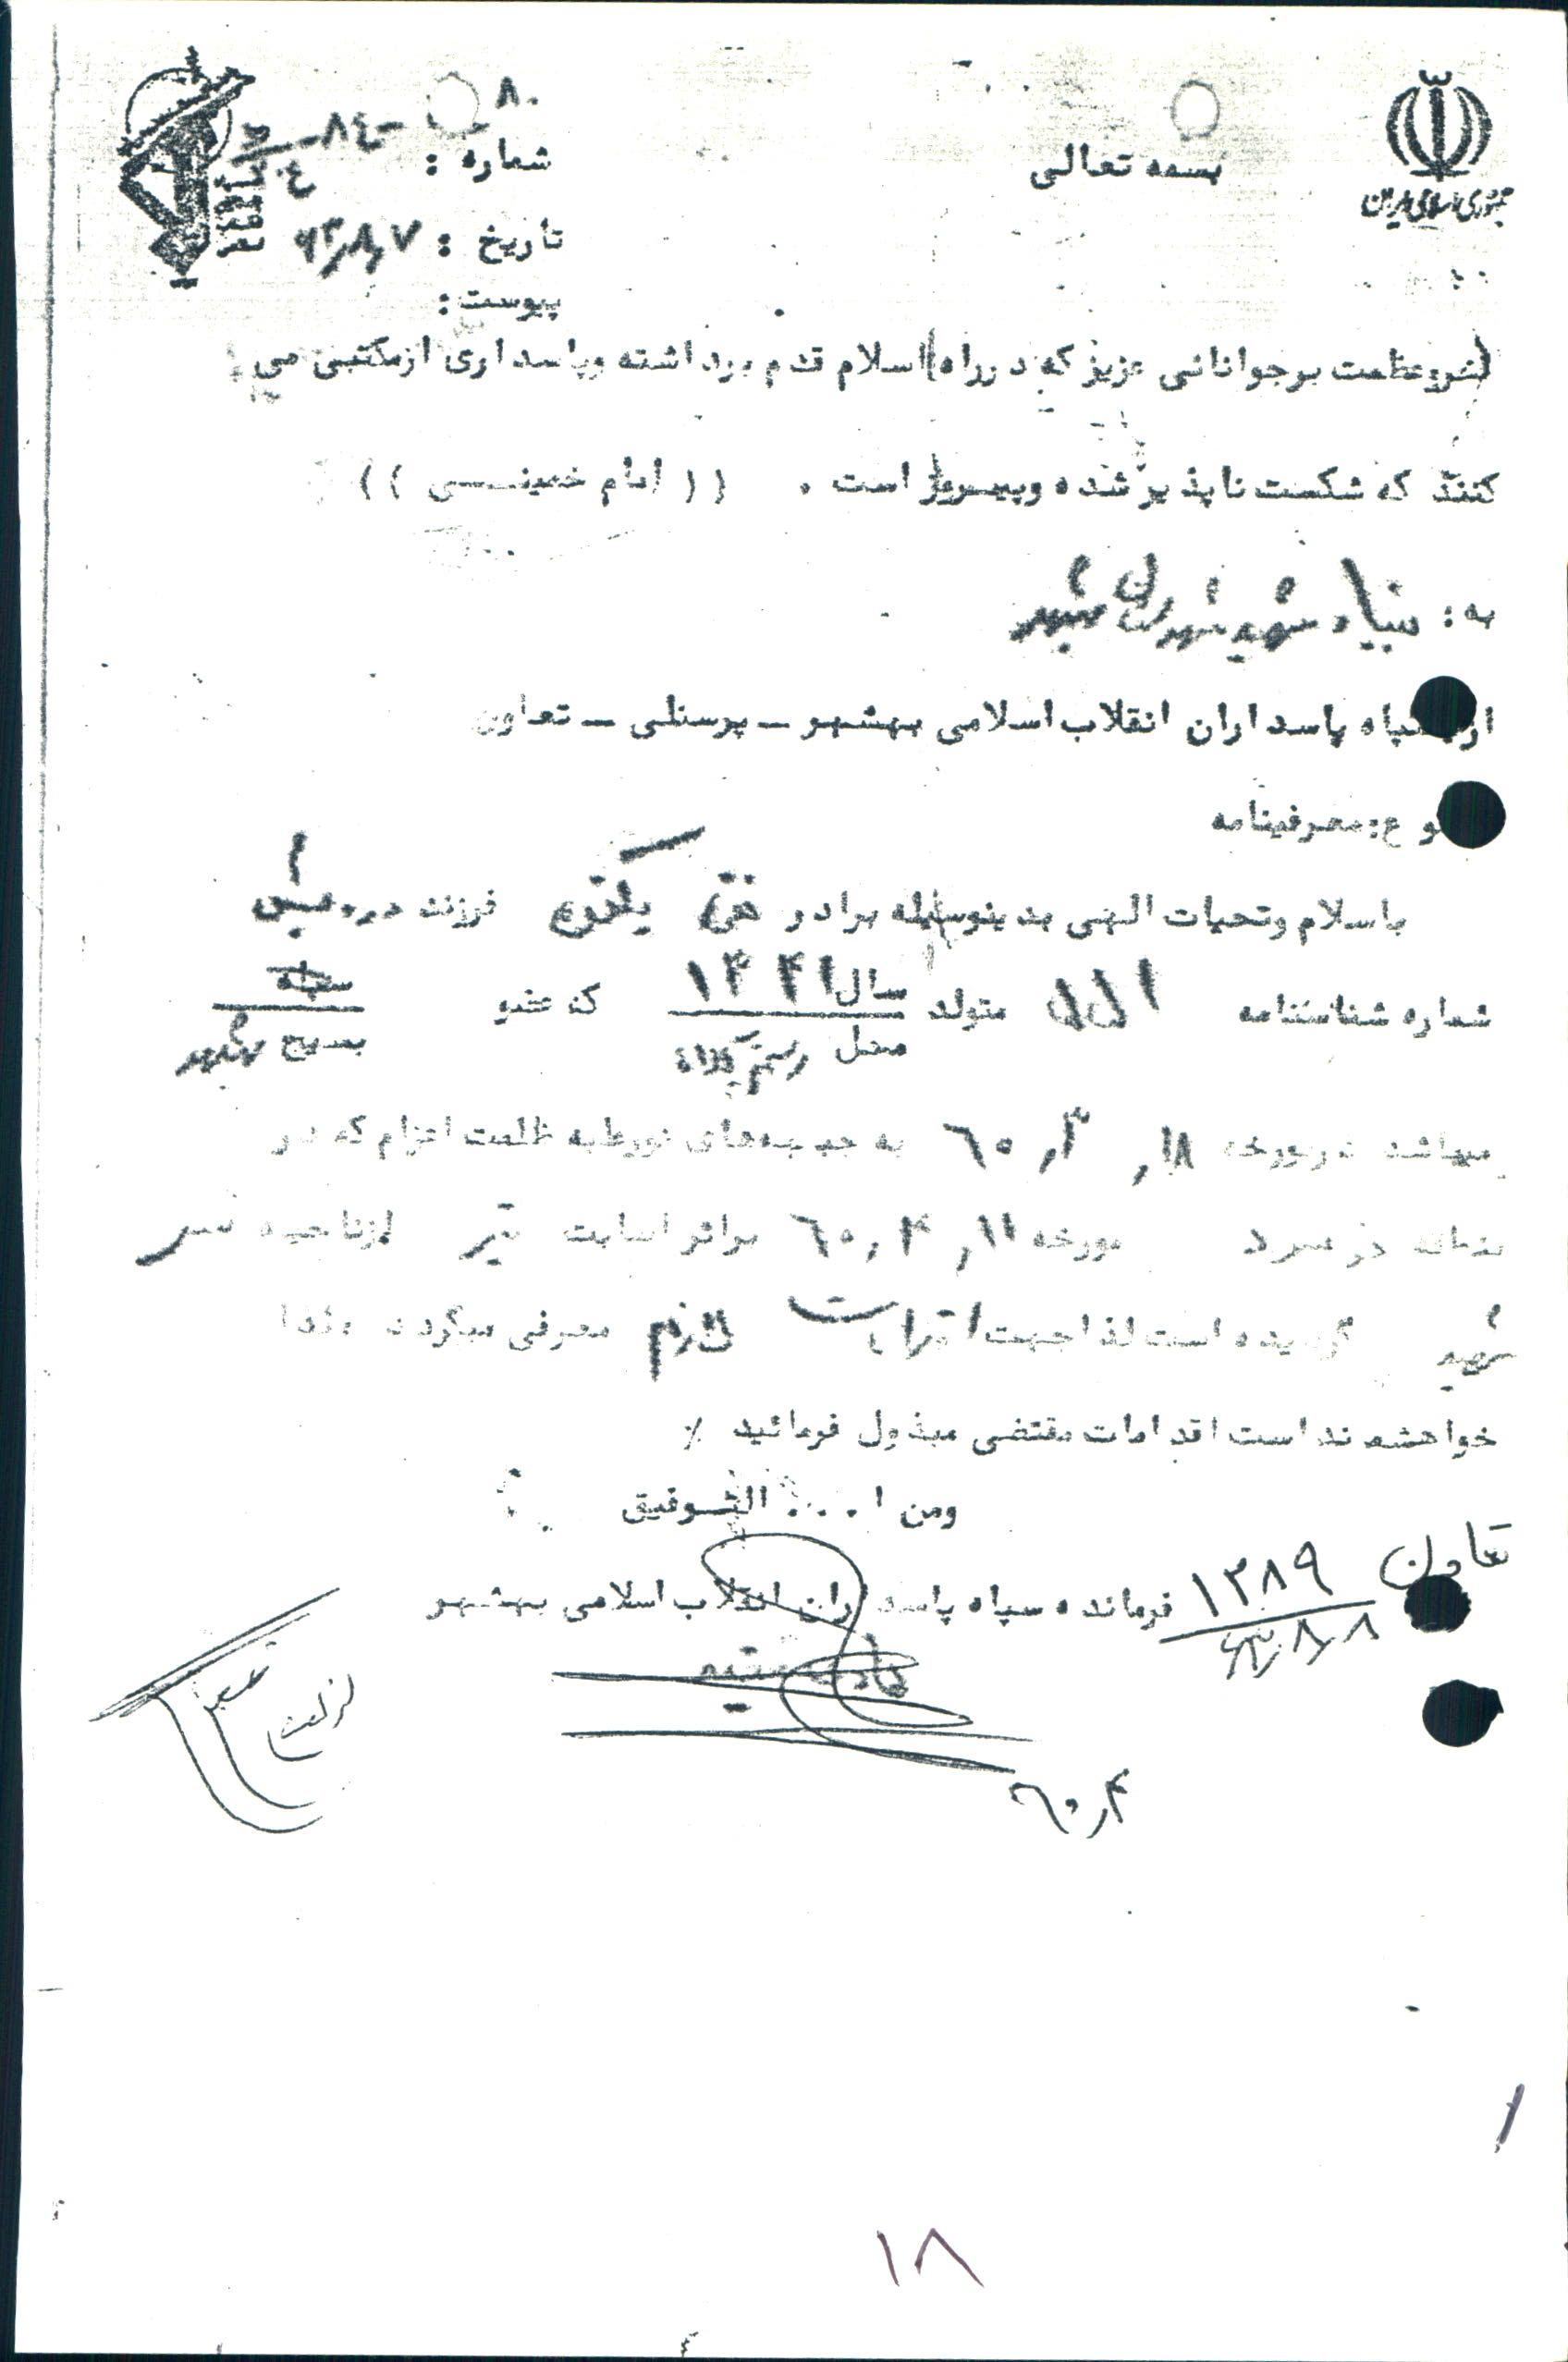 جمهوری اسلامی ایران
بسمه تعالی
۸۰
شماره : ۸٤-
تاریخ : ۶۳٫۸٫۷
پیوست :
عظمت بر جوانانی عزیز که در راه اسلام قدم برداشته وپاسداری از مکتبی می
کنند که شکست ناپذیر شده وپیروز است . (( امام خمینـی ))
به : بنیاد شهید شهرستان بهشهر
از : سپاه پاسداران انقلاب اسلامی بهشهر ــ پرسنلی ــ تعاون
وع : معرفینامه
باسلام وتحیات الهی بدینوسیله برادر تقی یعقوبی فرزند درویش
شماره شناسنامه متولد سال ۱۳۴۱ که عضو سپاه
محل رستم کلا بسیج بهشهر
میباشد درمورخه ۱۸٫ ۳٫ ٦۰ به جبهه‌های نورعلیه ظلمت اعزام که در
منطقه مورخه ۱۱٫ ۴٫ ٦۰ براثر اصابت تیر ازناحیه سر
شهید گردیده است لذا جهت لازم معرفی میگردد لذا
خواهشمند است اقدامات مقتضی مبذول فرمائید ٪
ومن ا... التـوفیق
فرمانده سپاه پاسداران انقلاب اسلامی بهشهر
تعاون
۱۳۸۹
۶۳٫۸٫۸
٦۰٫۴
۱
۱۸